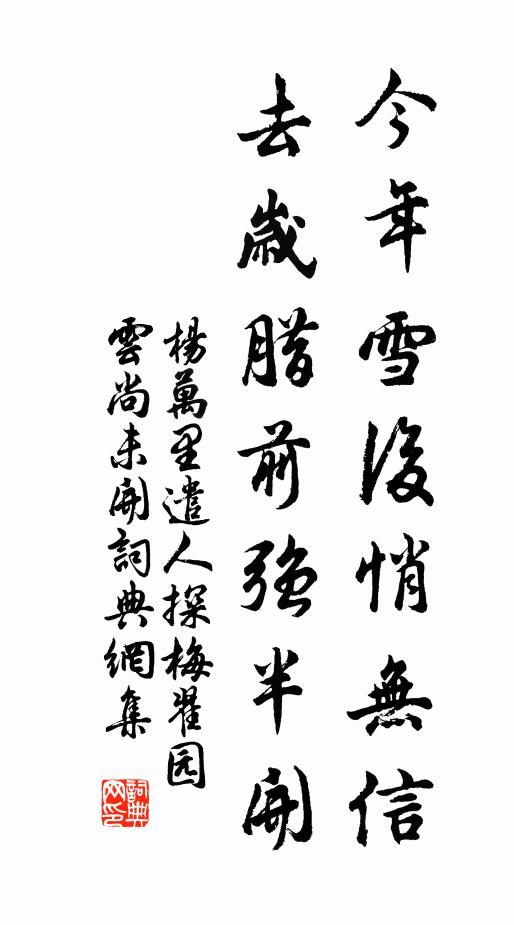 今年雪後悄無信
去歲腊前強半開
楊萬里遣人探梅翟园
雲尚未開詞典網集
詞典网印